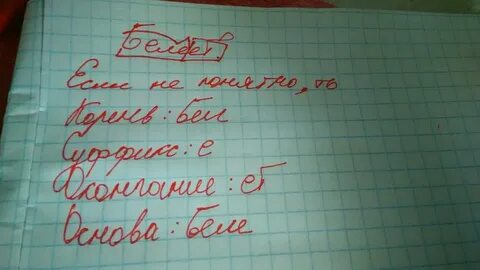 Белеет
Если не понятно, то
Корень: бел
Суффикс: е
Окончание: ет
Основа: беле